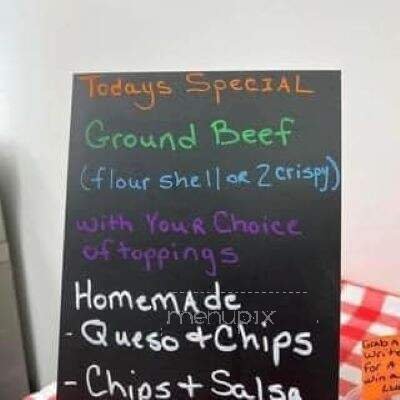 Todays Special
Ground Beef
(flour shell or 2 crispy)
with Your Choice
of toppings
Homemade
menupix
- Queso + Chips
- Chips + Salsa
Grab a
Write
For A
win a